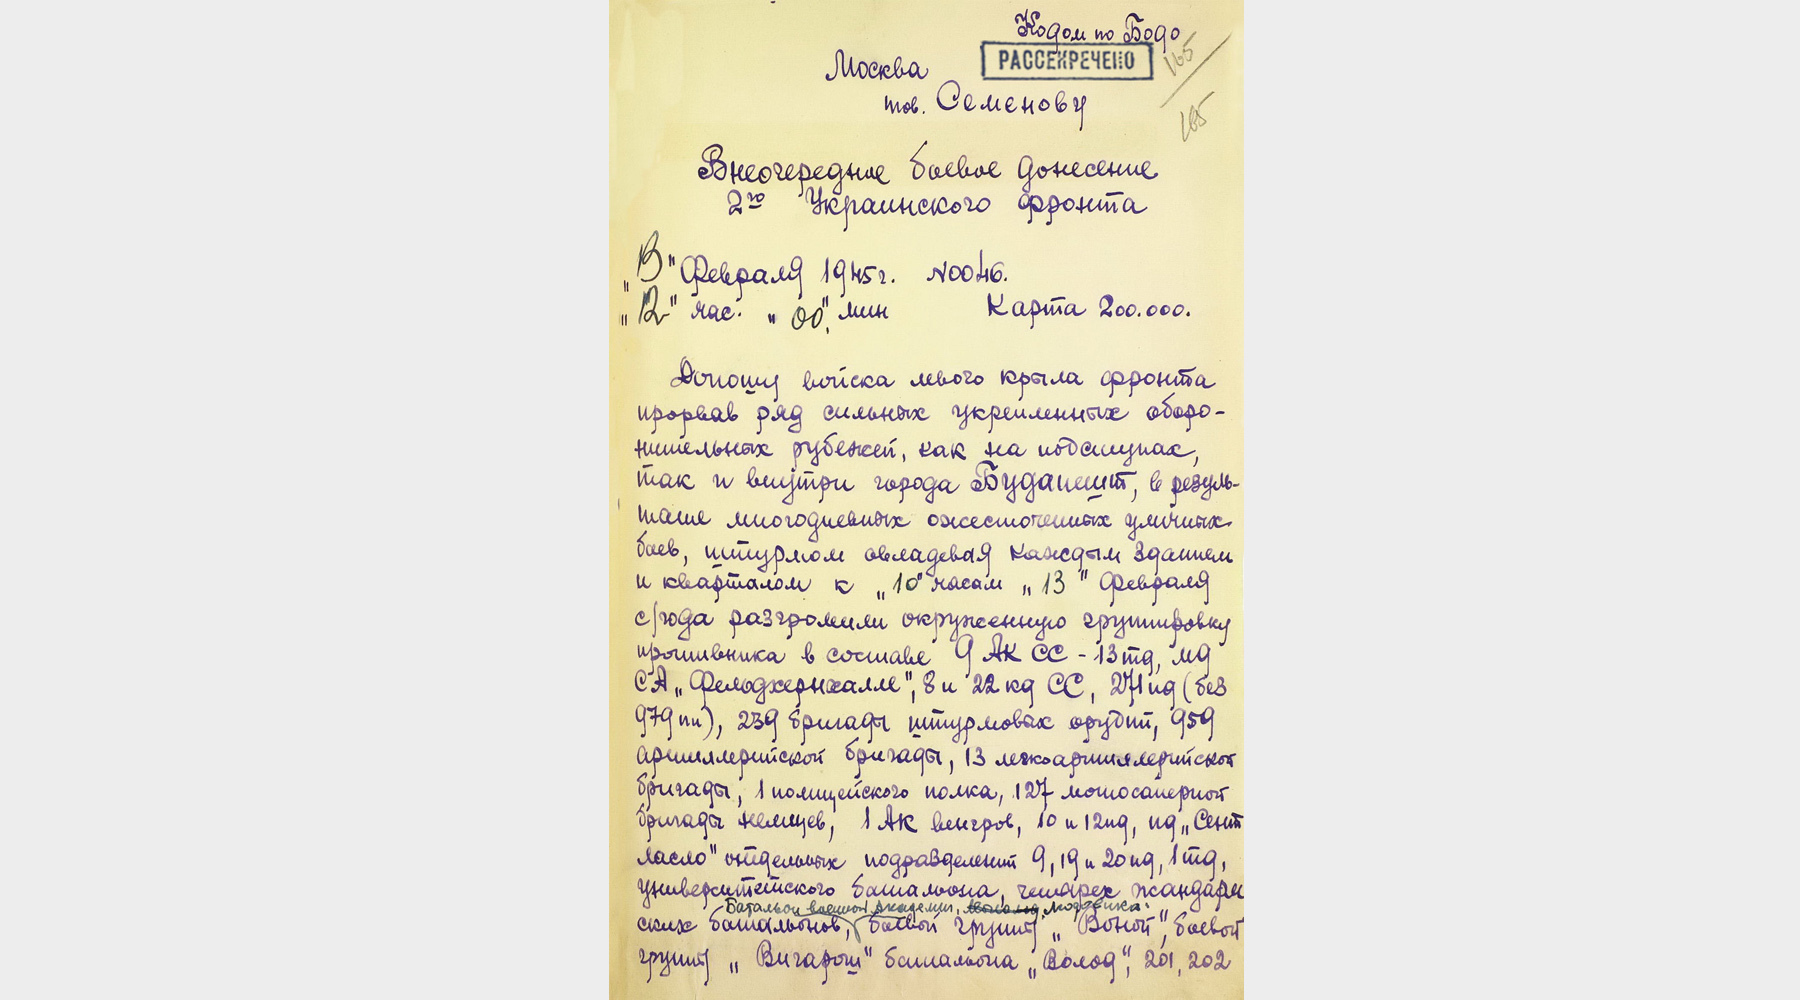 Кодом по Бодо
РАССЕКРЕЧЕНО
165
165
Москва
тов. Семенову
Внеочередное боевое донесение
2го Украинского фронта
"13" Февраля 1945г. №0046.
"12" час. "00" мин Карта 200.000.
Доношу войска левого крыла фронта
прорвав ряд сильных укрепленных оборо-
нительных рубежей, как на подступах,
так и внутри города Будапешт, в резуль-
тате многодневных ожесточенных уличных
боев, штурмом овладевая каждым зданием
и кварталом к "10" часам "13" Февраля
с/года разгромили окруженную группировку
противника в составе 9 АК СС - 13тд, мд
СА "Фельдхернхалле", 8 и 22 кд СС, 271пд (без
979пп), 239 бригады штурмовых орудий, 959
артиллерийской бригады, 13 легкоартиллерийской
бригады, 1 полицейского полка, 127 мотосаперной
бригады немцев, 1 АК венгров, 10 и 12пд, пд "Сент
ласло" отдельных подразделений 9, 19 и 20пд, 1тд,
университетского батальона, четырех жандарм
Батальон военной Академии,
ских батальонов, боевой группы "Воной", боевой
группы "Вигарош" батальона "Волод", 201, 202